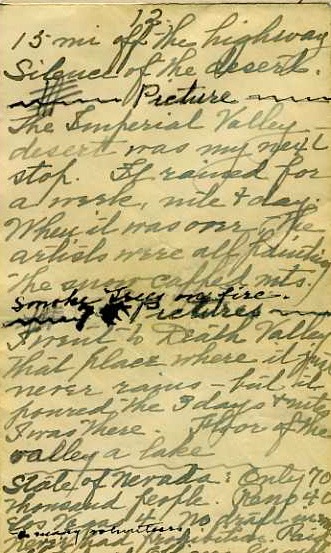 12.
15 mi off the highway
Silence of the desert.
Picture
The Imperial Valley
desert was my next
stop. It rained for
a week, nite & day.
When it was over, the
artists were all painting
the so called mts.
Smoke Trees on fire.
7 Pictures
I went to Death Valley
that place where it just
never rains - but it
poured the 3 days & nites
I was there. Floor of the
valley a lake
State of Nevada: Only 70
thousand people. Reno 4
No draft
& many volunteers
Never had